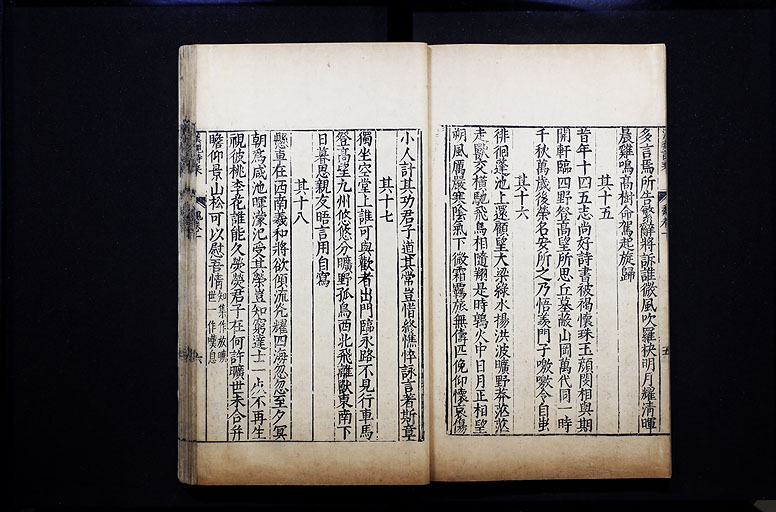 多言焉所告繁辭將訴誰微風吹羅袂明月耀清暉
晨雞鳴高樹命駕起旋歸
其十五
昔年十四五志尚好詩書被褐懷珠玉顏閔相與期
開軒臨四野登高望所思丘墓蔽山岡萬代同一時
千秋萬歲後榮名安所之乃悟羨門子噭噭令自蚩
其十六
徘徊蓬池上還顧望大梁綠水揚洪波曠野莽茫茫
走獸交橫馳飛鳥相隨翔是時鶉火中日月正相望
朔風厲嚴寒陰氣下微霜羈旅無儔匹俛仰懷哀傷
小人計其功君子道其常豈惜終憔悴詠言著斯章
其十七
獨坐空堂上誰可與歡者出門臨永路不見行車馬
登高望九州悠悠分曠野孤鳥西北飛離獸東南下
日暮思親友晤言用自寫
其十八
懸車在西南羲和將欲傾流光耀四海忽忽至夕冥
朝爲咸池暉濛汜受其榮豈知窮達士一死不再生
視彼桃李花誰能久熒熒君子在何許曠世未合并
瞻仰景山松可以慰吾情